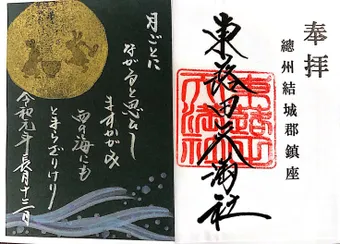 奉拝
總州結城郡鎮座
東蕗田天満社
東蕗田天満社
月ごとに
ながると思ひし
ますかがみ
西の海にも
とまらざりけり
令和元年長月十三日